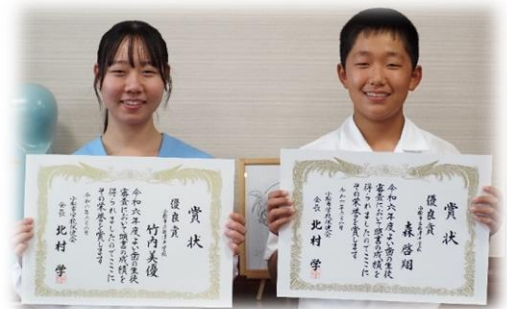 賞状
優良賞
竹内美優
令和六年度よい歯の生徒
審査において頭書の成績を
得られましたのでここに
その栄誉を賞します
小松市学校保健会
会長 北村 学
賞状
優良賞
森 啓翔
令和六年度よい歯の生徒
審査において頭書の成績を
得られましたのでここに
その栄誉を賞します
小松市学校保健会
会長 北村 学